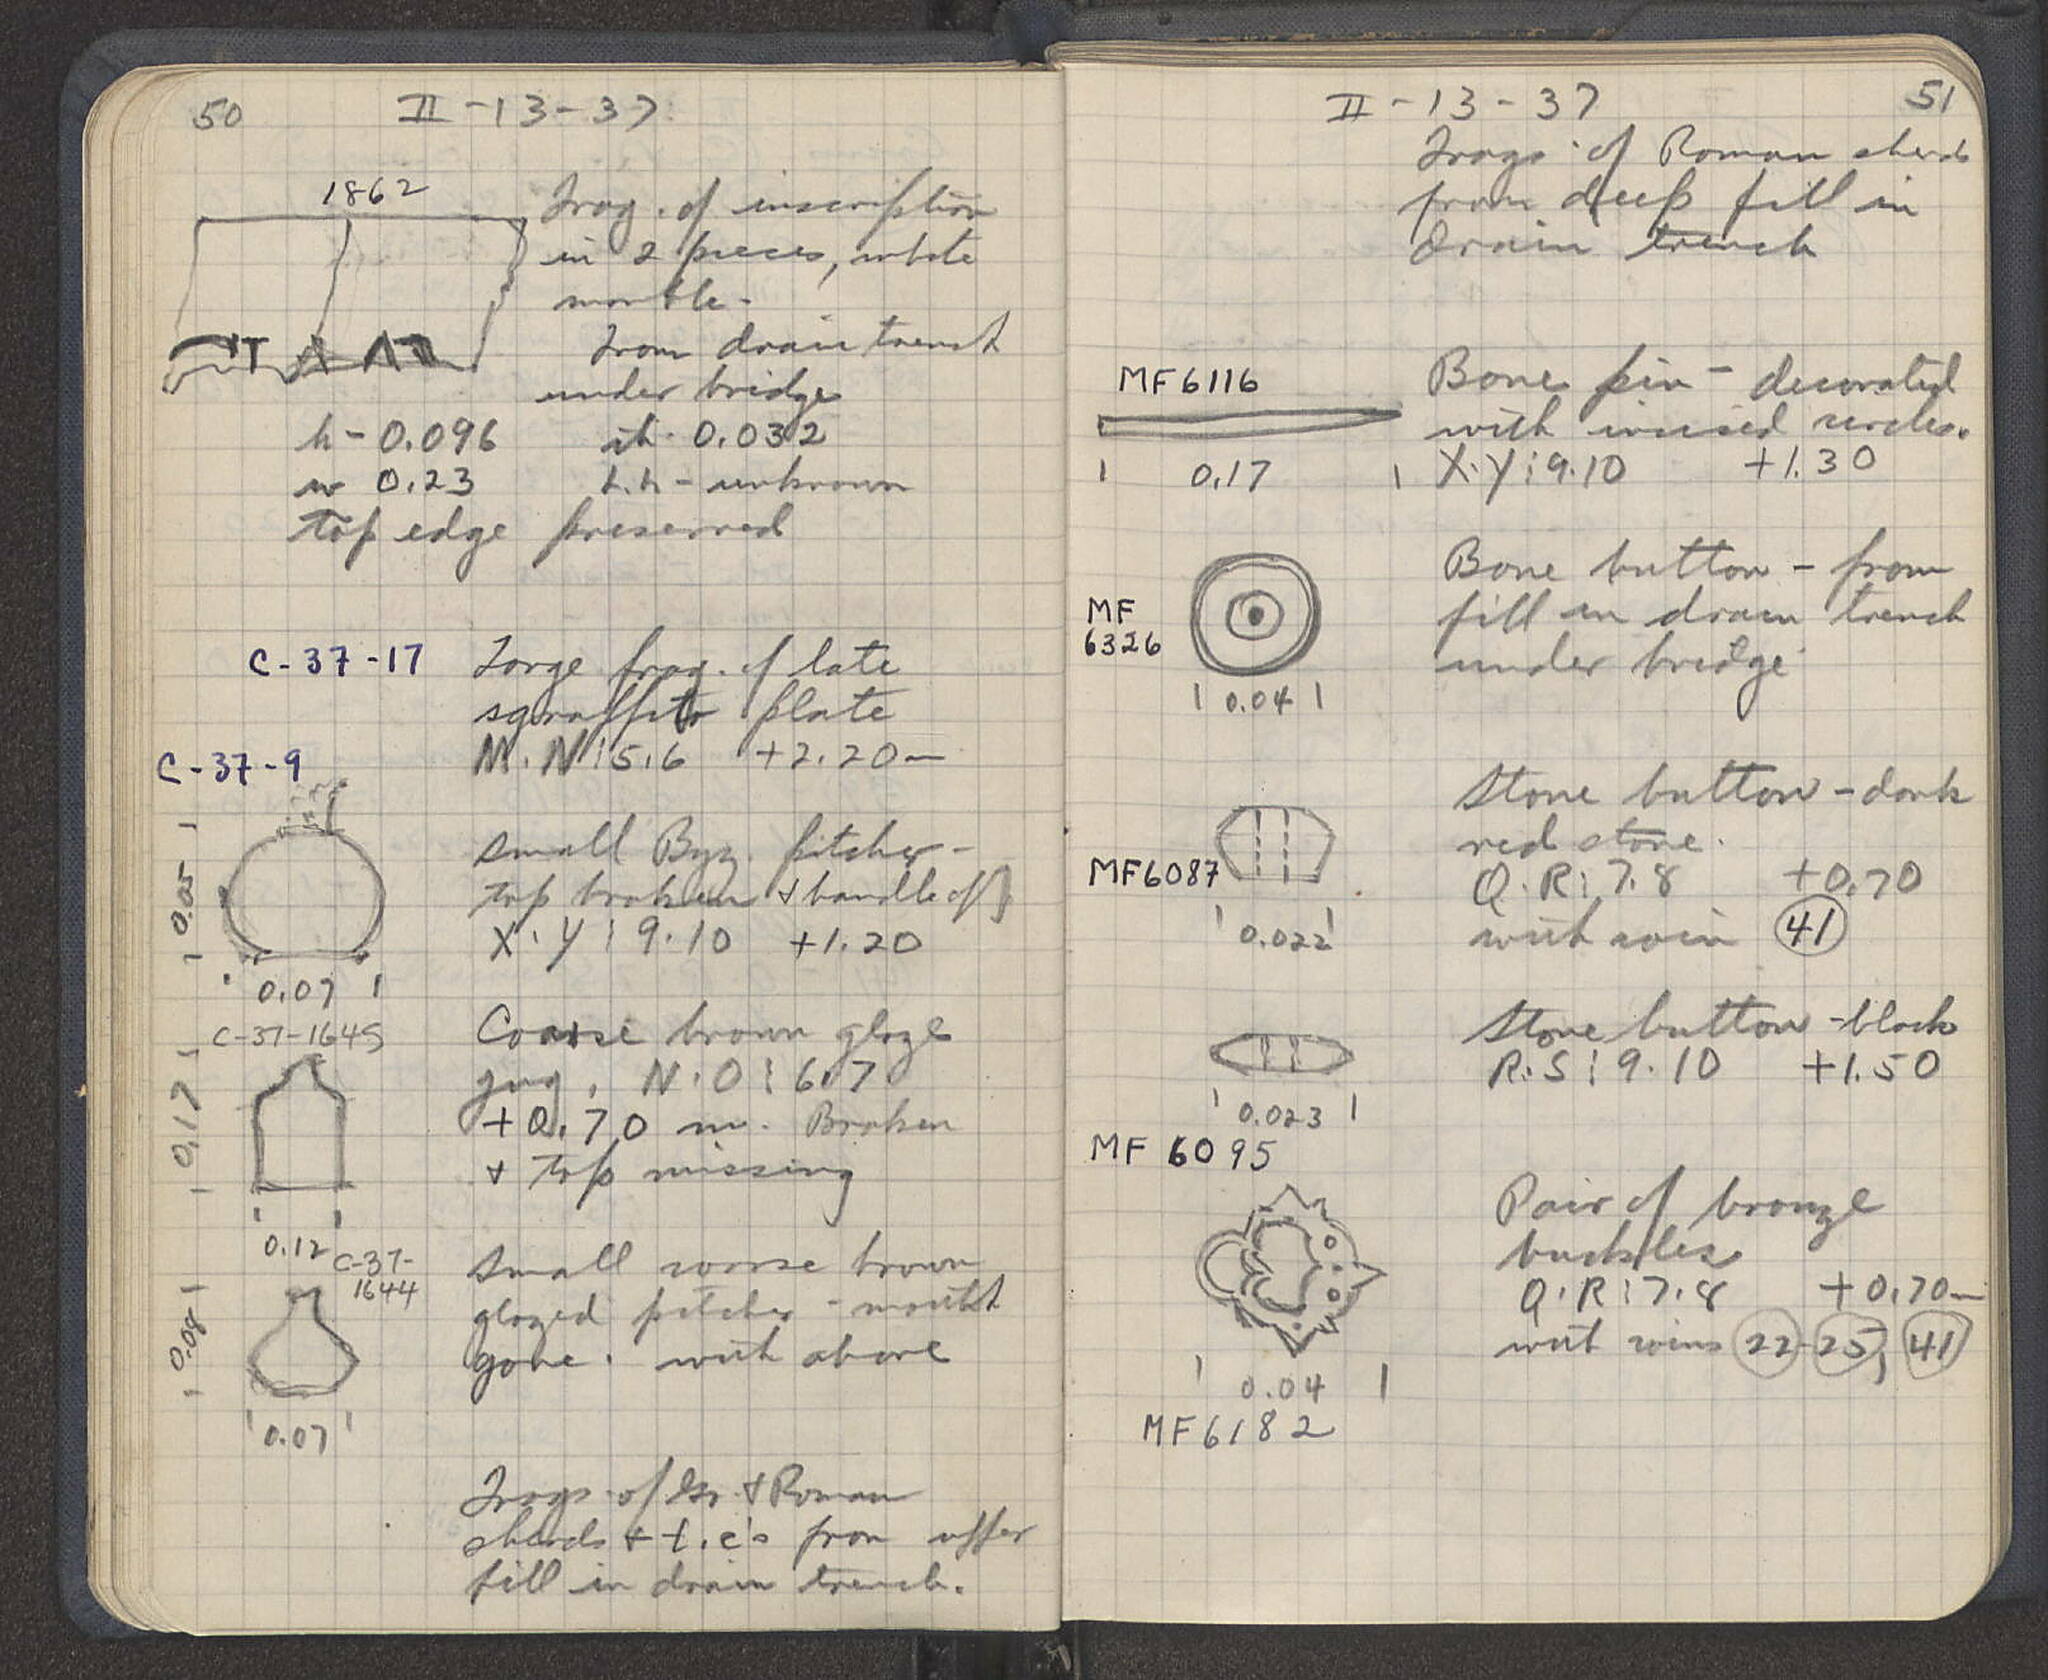 50
II-13-37
1862
Frag. of inscription
in 2 pieces, white
marble.
From drain trench
under bridge
h - 0.096 th. 0.032
w 0.23 L.h - unknown
top edge preserved
C-37-17
Large frag. of late
sgraffito plate
M.N:5.6 +2.20m
C-37-9
0.05
0.07
Small Byz. pitcher -
top broken & handle off
X.Y:9.10 +1.20
C-37-1645
0.17
0.12
Coarse brown glaze
jug. N.O:6.7
+0.70 m. Broken
& top missing
C-37-
1644
0.08
0.07
Small coarse brown
glazed pitcher - mouth
gone. with above
Frags. of Gr. & Roman
sherds & t.c's from upper
fill in drain trench.
II-13-37
51
Frags. of Roman sherds
from deep fill in
drain trench
MF6116
0.17
Bone pin - decorated
with incised circles.
X.Y:9.10 +1.30
MF
6326
0.04
Bone button - from
fill in drain trench
under bridge
MF6087
0.022
Stone button - dark
red stone.
Q.R:7.8 +0.70
with coin 41
0.023
MF 6095
Stone button - black
R.S:9.10 +1.50
0.04
MF6182
Pair of bronze
buckles
Q.R:7.8 +0.70m
with coins 22-25, 41